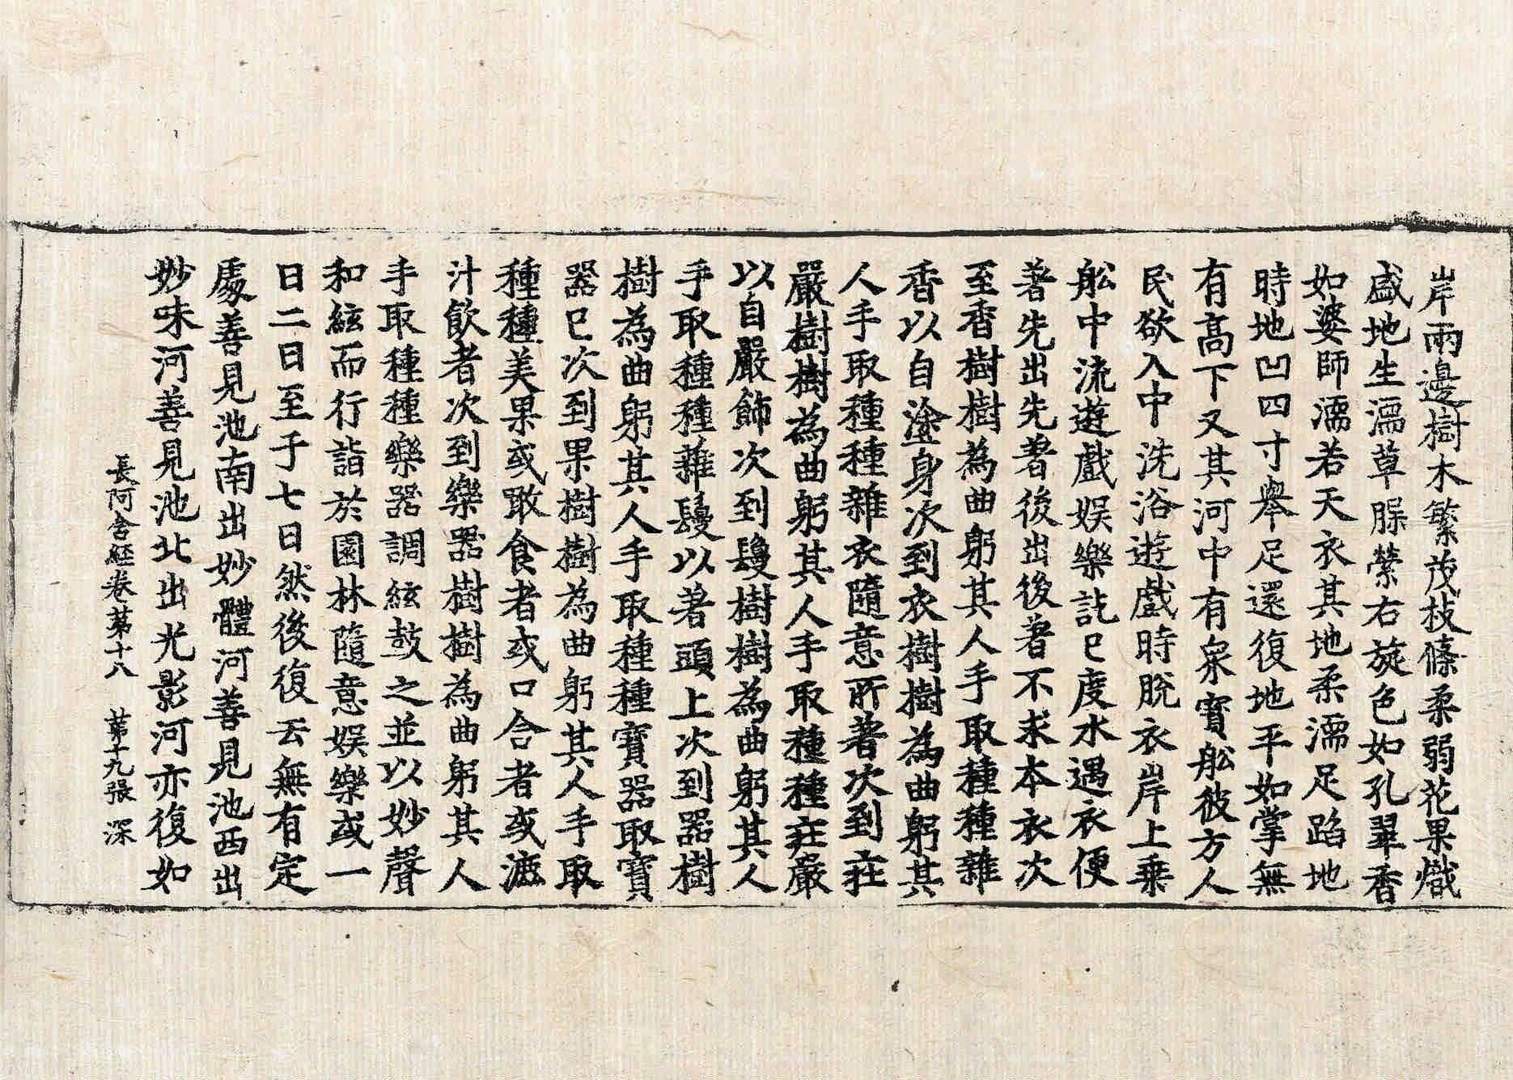 岸兩邊樹木繁茂枝條柔弱花果熾
盛地生濡草𦟛縈右旋色如孔翠香
如婆師濡若天衣其地柔濡足蹈地
時地凹四寸舉足還復地平如掌無
有高下又其河中有衆寶舩彼方人
民欲入中洗浴遊戲時脫衣岸上乗
舩中流遊戲娛樂訖已度水遇衣便
著先出先著後出後著不求本衣次
至香樹樹為曲躬其人手取種種雜
香以自塗身次到衣樹樹為曲躬其
人手取種種雜衣隨意所著次到莊
嚴樹樹為曲躬其人手取種種莊嚴
以自嚴飾次到鬘樹樹為曲躬其人
手取種種雜鬘以著頭上次到器樹
樹為曲躬其人手取種種寶器取寶
器已次到果樹樹為曲躬其人手取
種種美果或噉食者或口含者或漉
汁飲者次到樂器樹樹為曲躬其人
手取種種樂器調絃鼓之並以妙聲
和絃而行詣於園林隨意娛樂或一
日二日至于七日然後復去無有定
處善見池南出妙體河善見池西出
妙味河善見池北出光影河亦復如
長阿含經卷第十八　第十九張　深